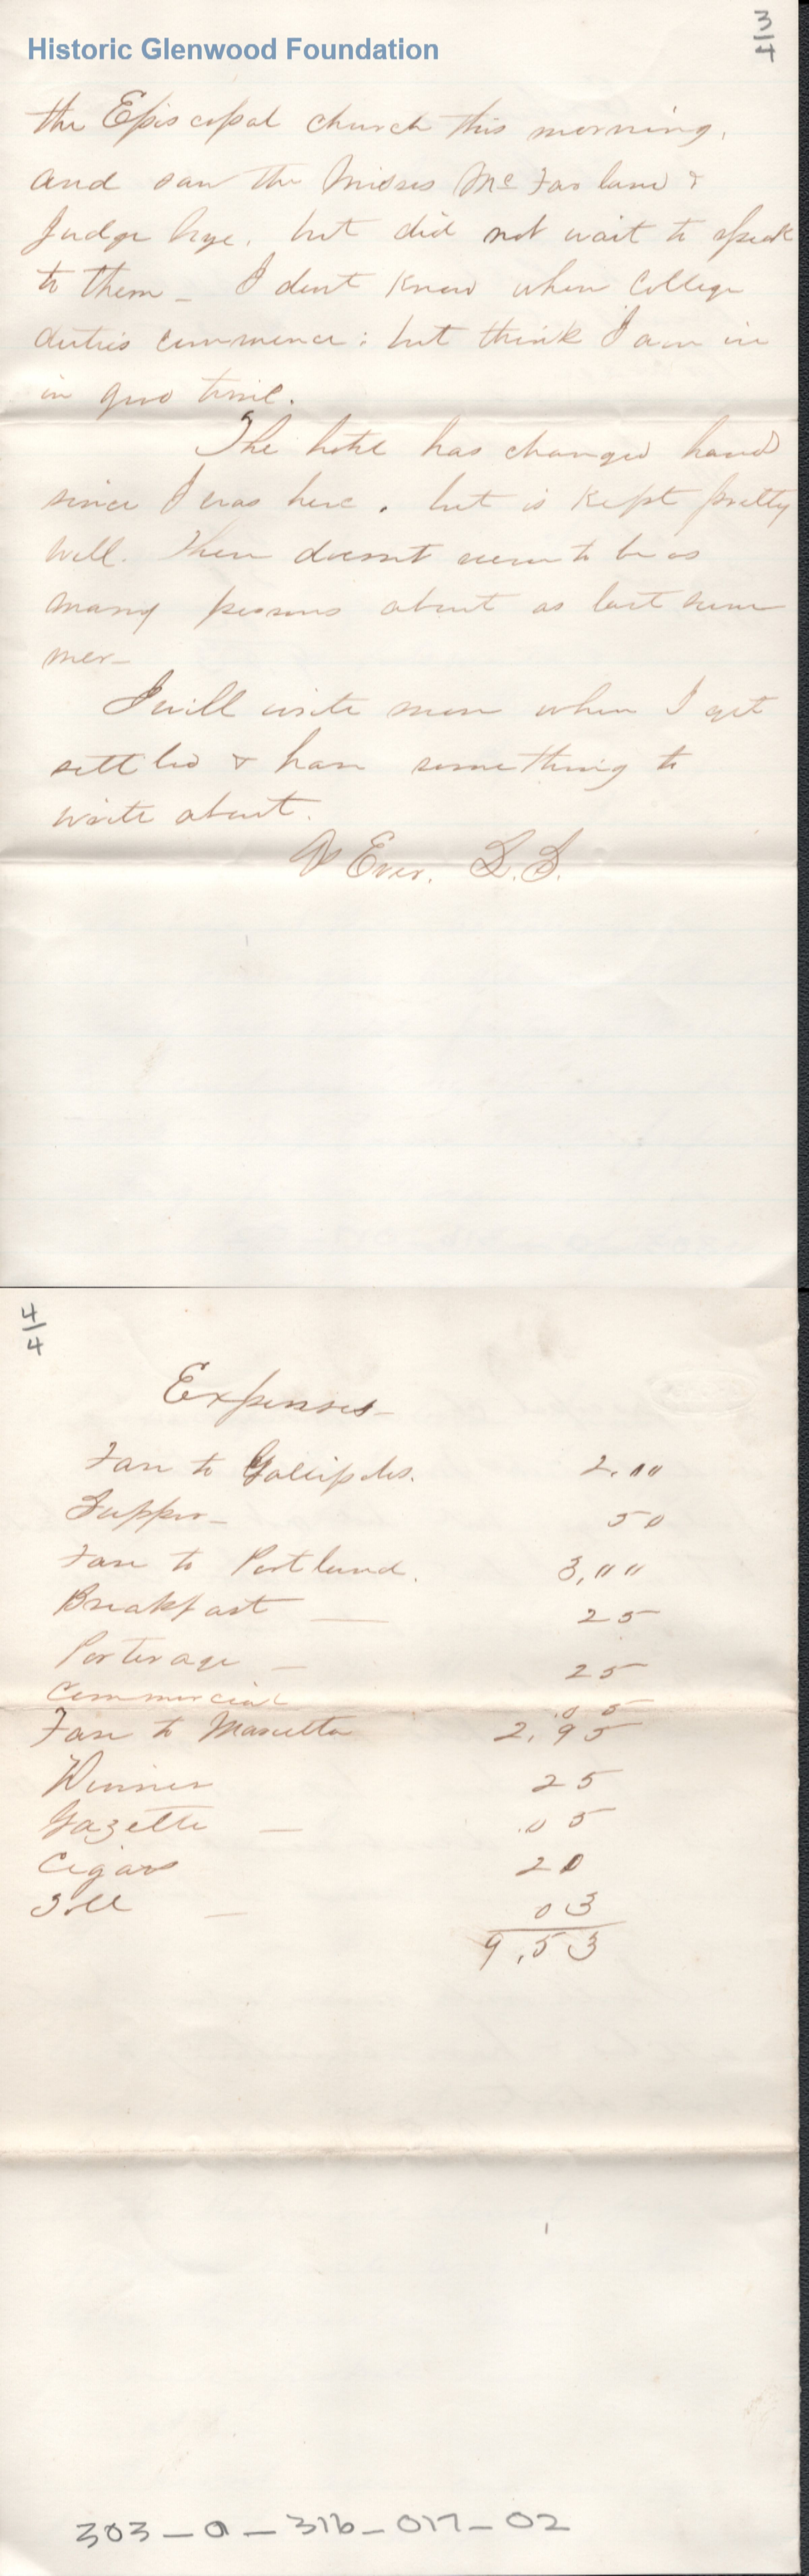 Historic Glenwood Foundation
3/4
the Episcopal church this morning,
and saw the Misses McFarland &
Judge Nye, but did not wait to speak
to them – I dont know when College
duties commence; but think I am in
in good time.
The hotel has changed hands
since I was here, but is kept pretty
well. There doesnt seem to be as
many persons about as last sum
mer –
I will write more when I get
settled & have something to
write about.
As Ever. L.S.
4/4
Expenses –
Fare to Gallipolis. 2,00
Supper – 50
Fare to Portland. 3,00
Breakfast — 25
Porterage – 25
Commercial .05
Fare to Marietta 2,95
Dinner 25
Gazette – .05
Cigars 20
Toll – 03
9,53
303-a-316-017-02